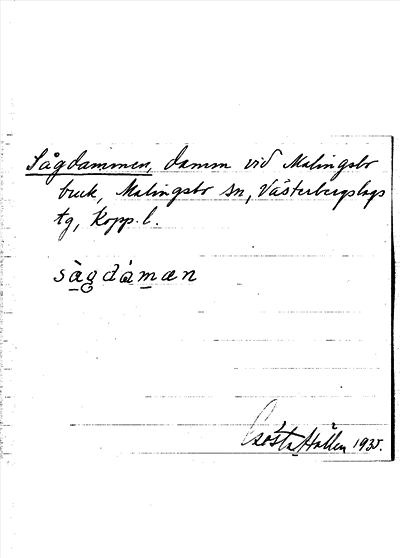 Sågdammen, damm vid Malingsbo
bruk, Malingsbo sn, Västerbergslags
tg, Kopp. l.
sàgdámæn
Gösta Hallen 1935.